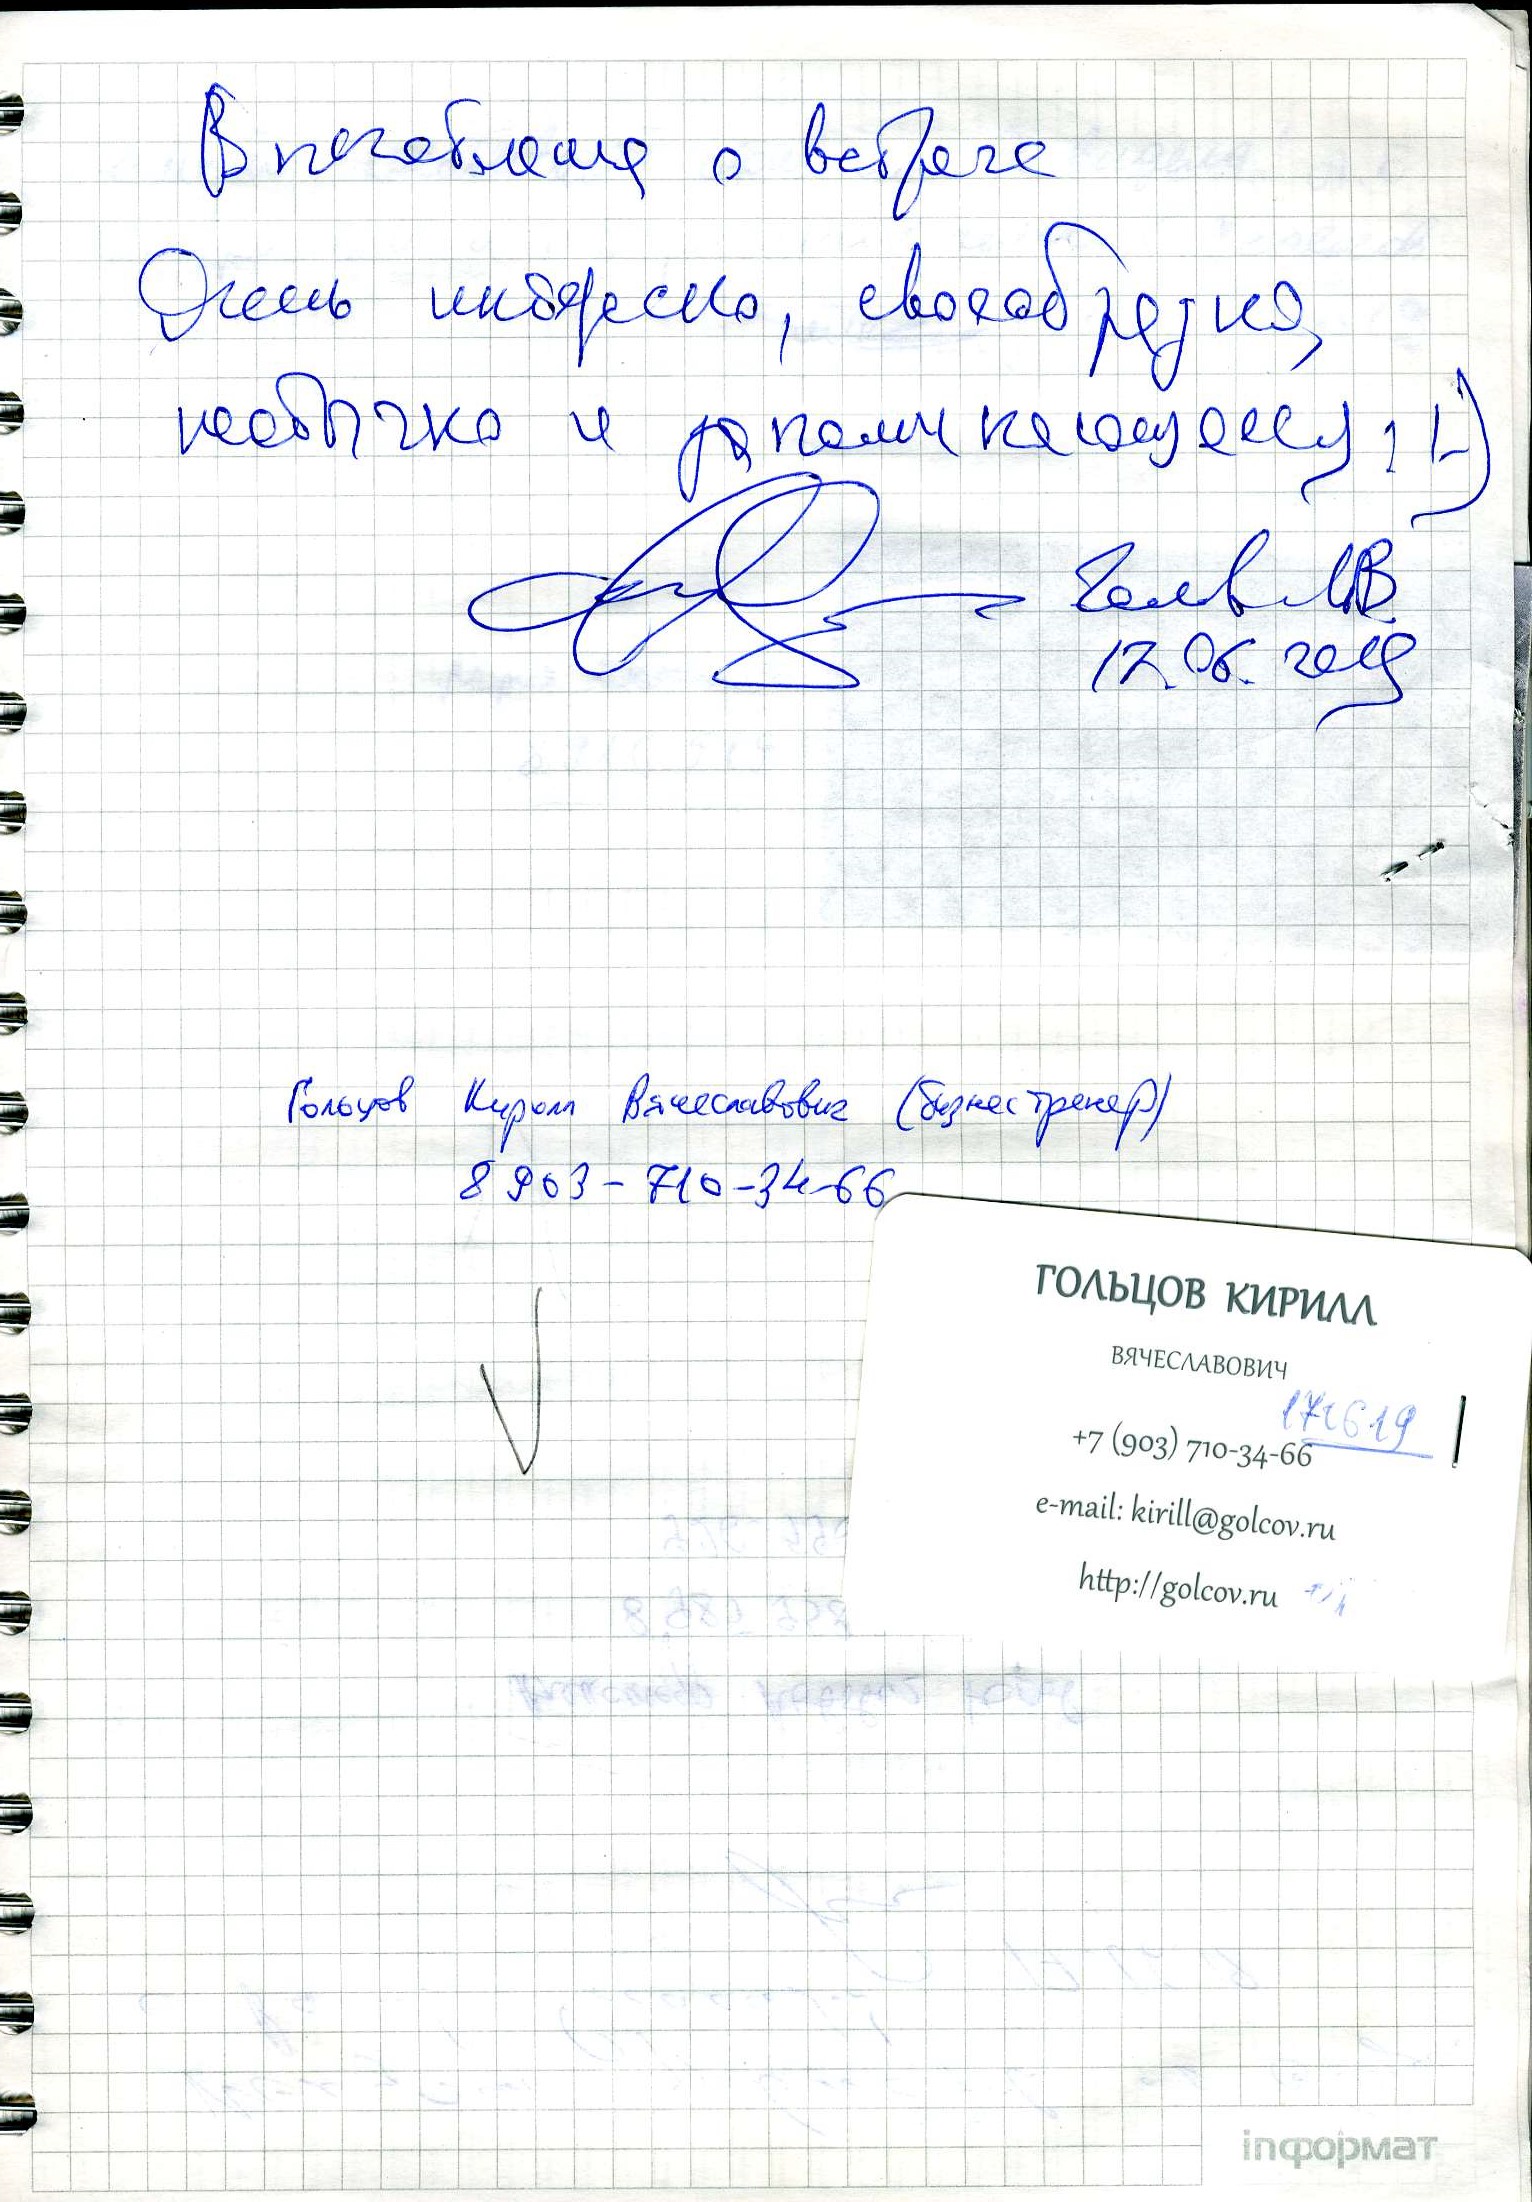 Впечатления о встрече
Очень интересно, своеобразно,
необычно и запоминающееся, !-)
17.06.2019
Гольцов Кирилл Вячеславович (бизнестренер)
8 903-710-34-66
ГОЛЬЦОВ КИРИЛЛ
ВЯЧЕСЛАВОВИЧ
170619
+7 (903) 710-34-66
e-mail: kirill@golcov.ru
http://golcov.ru
inформат